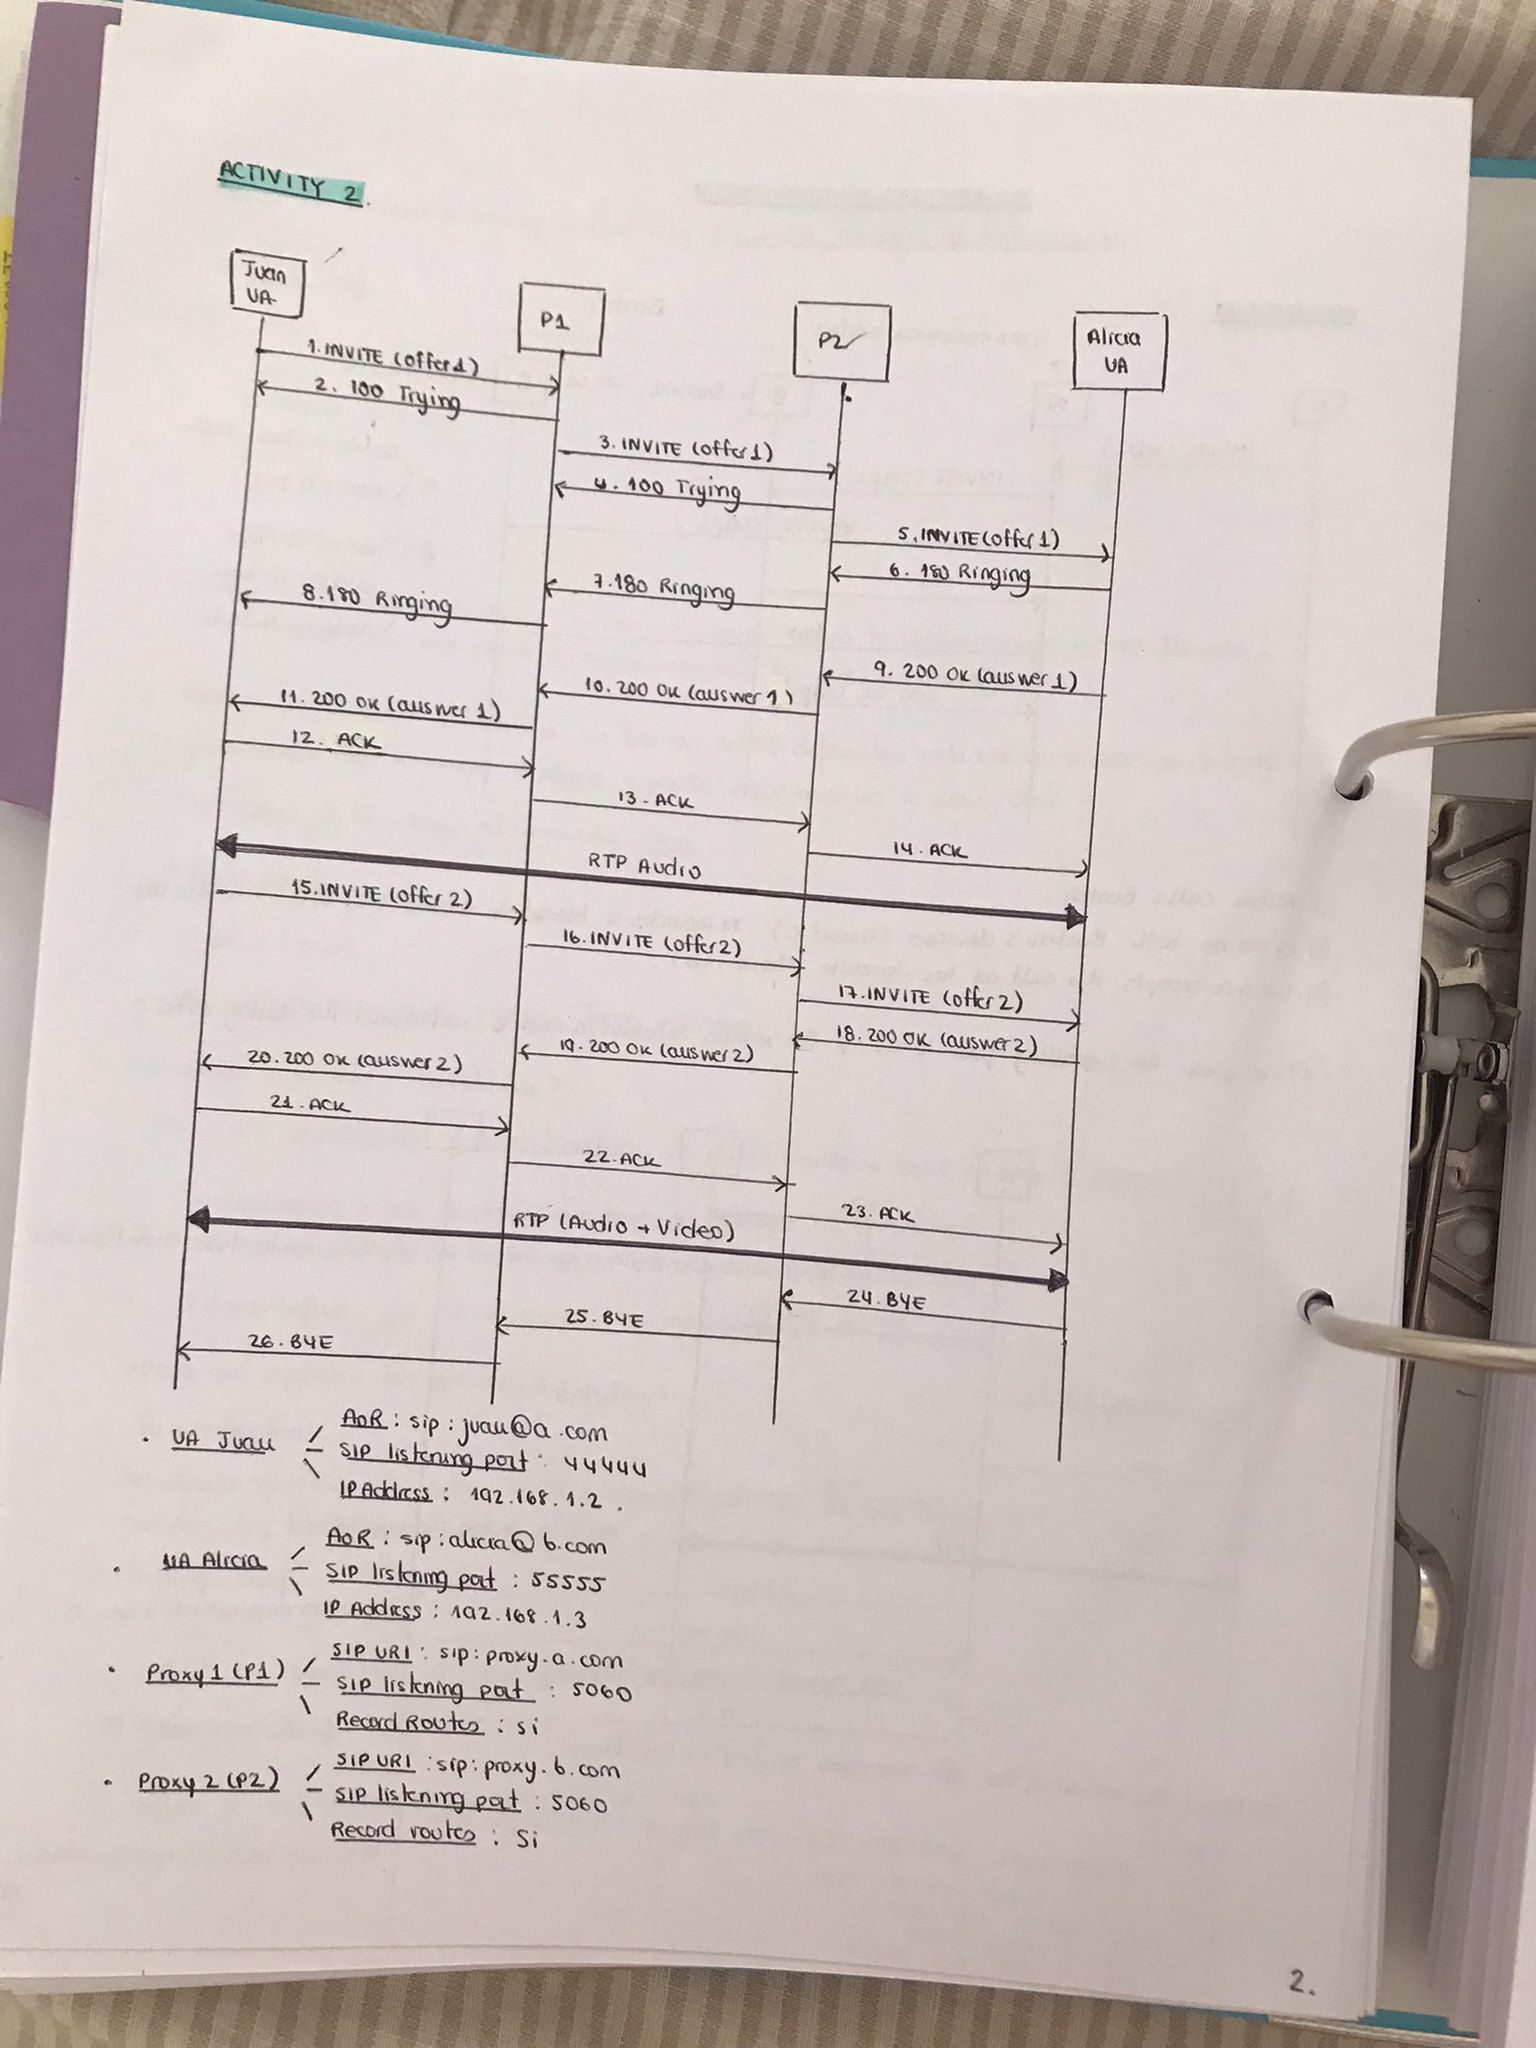 ACTIVITY 2.
Juan
UA
P1
P2
Alicia
UA
1. INVITE (offer1)
2. 100 Trying
3. INVITE (offer1)
4. 100 Trying
5. INVITE (offer1)
6. 180 Ringing
7. 180 Ringing
8. 180 Ringing
9. 200 OK (answer1)
10. 200 OK (answer 1)
11. 200 OK (answer 1)
12. ACK
13. ACK
14. ACK
RTP Audio
15. INVITE (offer 2)
16. INVITE (offer2)
17. INVITE (offer 2)
18. 200 OK (answer2)
19. 200 OK (answer2)
20. 200 OK (answer2)
21. ACK
22. ACK
23. ACK
RTP (Audio + Video)
24. BYE
25. BYE
26. BYE
· UA Juan
AoR : sip : juan@a.com
SIP listening port : 44444
IP Address : 192.168.1.2 .
· UA Alicia
AoR : sip : alicia@b.com
SIP listening port : 55555
IP Address : 192.168.1.3
· Proxy 1 (P1)
SIP URI : sip: proxy.a.com
SIP listening port : 5060
Record Routes : si
· Proxy 2 (P2)
SIP URI : sip: proxy.b.com
SIP listening port : 5060
Record routes : Si
2.